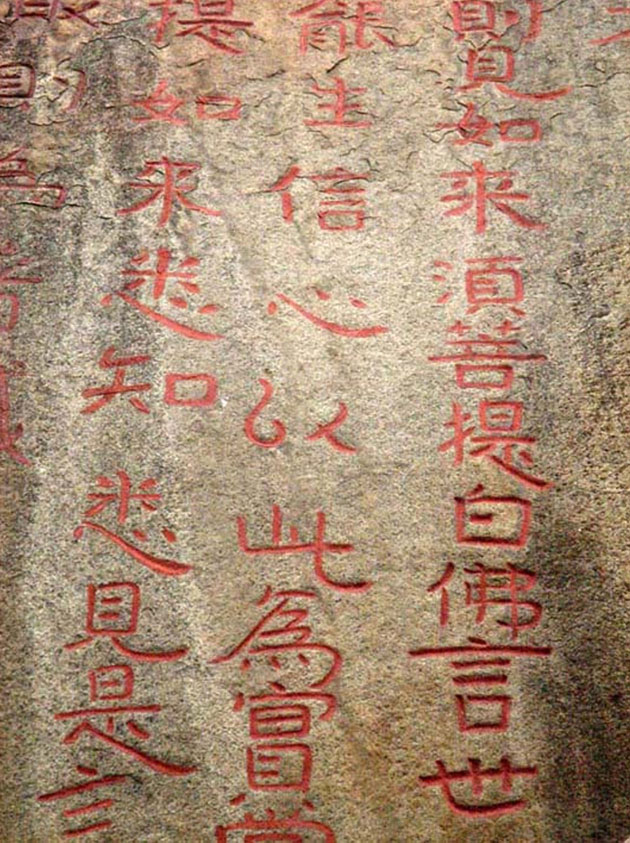 則見如来湏菩提白佛言世
能生信心以此為實當
提如来悉知悉見是